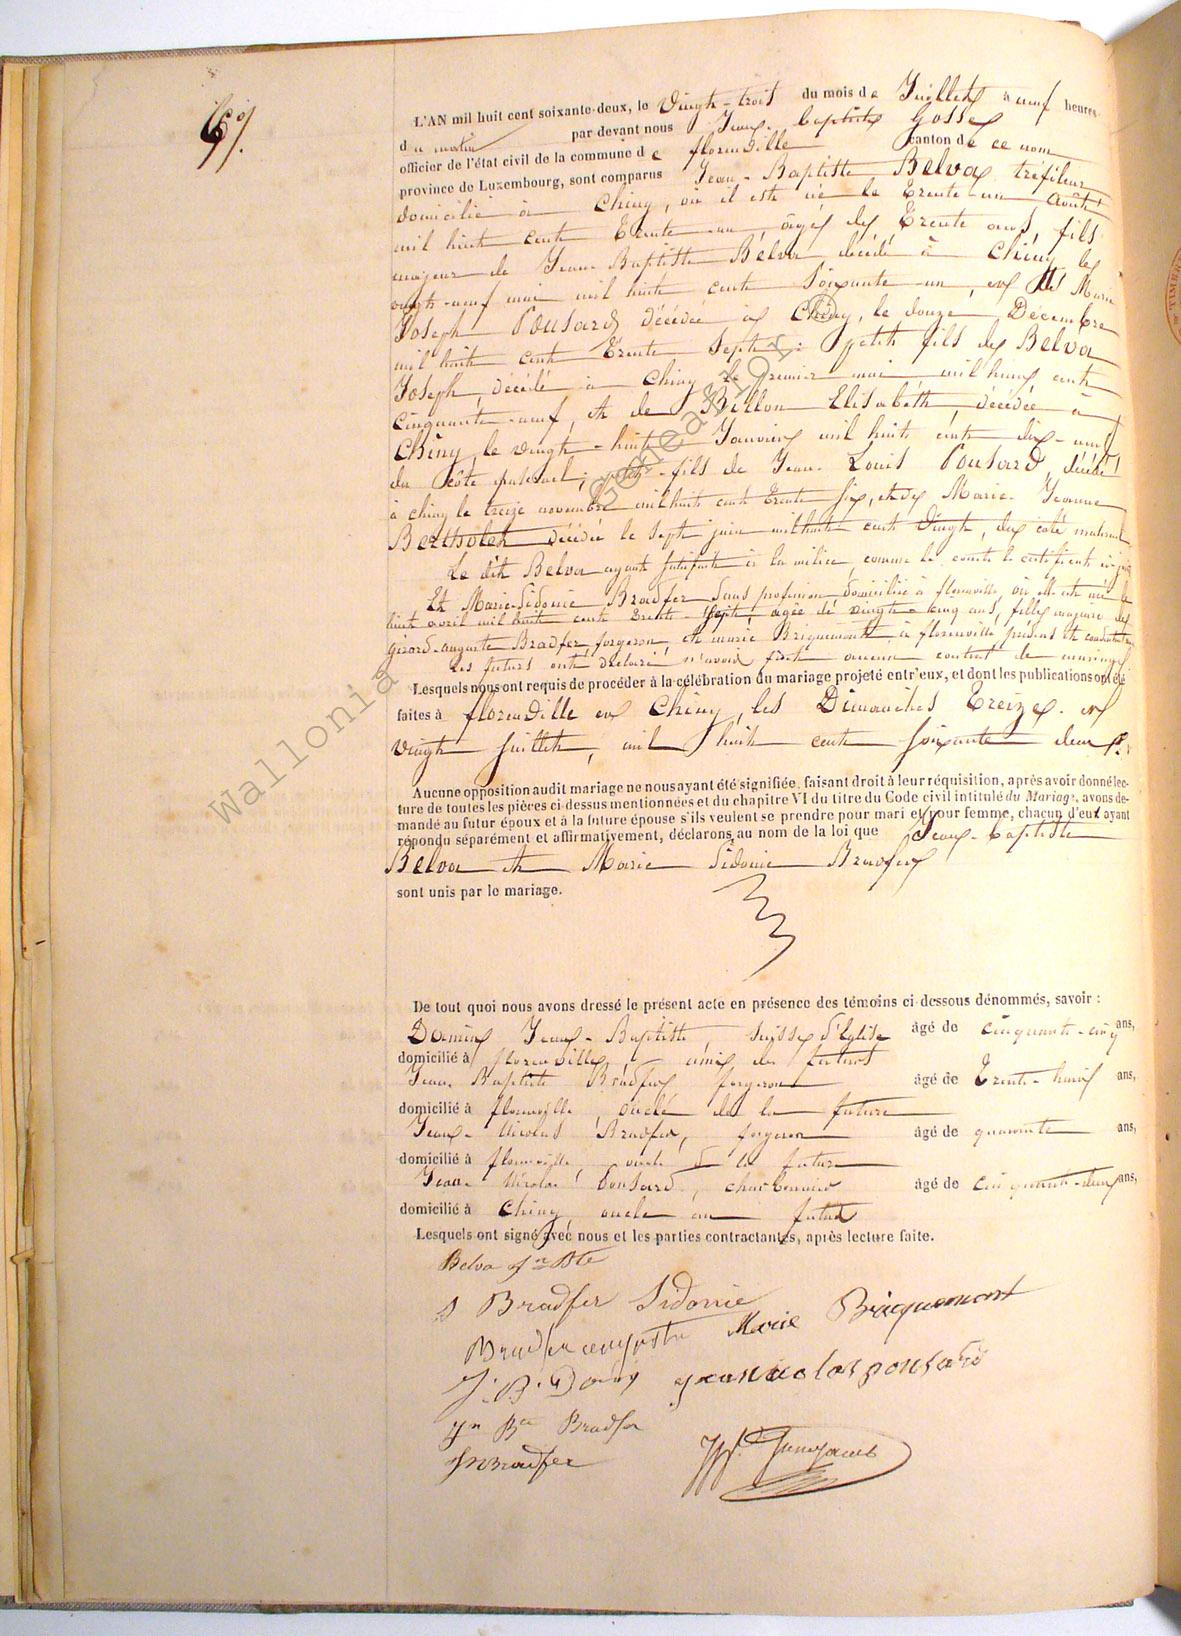 6
L'AN mil huit cent soixante-deux, le vingt-trois du mois de Juillet à neuf heures
du matin par devant nous Jean-baptiste Gosse
officier de l'état civil de la commune de florenville canton de ce nom
province de Luxembourg, sont comparus Jean-Baptiste Belva tréfileur
domicilié à Chiny, où il est né le Trente-un août
mil huit cent Trente-un, âgé de Trente ans, fils
majeur de Jean-Baptiste Belva décédé à Chiny le
vingt-neuf mai mil huit cent soixante-un, et de Marie
Joseph Ponsard décédée à Chiny, le douze Décembre
mil huit cent Trente Sept : petit fils de Belva
Joseph, décédé à Chiny le premier mai mil huit cent
cinquante-neuf, et de Billon Elisabéth, décédée à
Chiny le vingt-huit Janvier mil huit cent dix-neuf
du côté paternel; petit-fils de Jean-Louis Ponsard, décédé
à chiny le treize novembre mil huit cent Trente six, et de Marie-Jeanne
Bertholet décédée le sept juin mil huit cent vingt, du coté maternel
Le dit Belva ayant satisfait à la milice, comme le conste le certificat ci-joint
Et Marie-Sidonie Bradfer sans profession domiciliée à florenville, où elle est née le
huit avril mil huit cent trente-sept, agée de vingt-cinq ans, fille majeure de
girard-auguste Bradfer, forgeron, et marie Bricquemont, à florenville présens et consentants
Les futurs ont déclaré n'avoir fait aucun contrat de mariage
Lesquels nous ont requis de procéder à la célébration du mariage projeté entr'eux, et dont les publications ont été
faites à florenville et Chiny, les Dimanches Treize et
vingt juillet, mil huit cent soixante deux
Aucune opposition audit mariage ne nous ayant été signifiée, faisant droit à leur réquisition, après avoir donné lec-
ture de toutes les pièces ci-dessus mentionnées et du chapitre VI du titre du Code civil intitulé du Mariage, avons de-
mandé au futur époux et à la future épouse s'ils veulent se prendre pour mari et pour femme, chacun d'eux ayant
répondu séparément et affirmativement, déclarons au nom de la loi que Jean-baptiste
Belva et Marie Sidonie Bradfer
sont unis par le mariage.
De tout quoi nous avons dressé le présent acte en présence des témoins ci-dessous dénommés, savoir :
Jean-Baptiste, suisse d'Eglise âgé de cinquante-cinq ans,
domicilié à florenville, ami des futurs
Jean Baptiste Bradfer forgeron âgé de Trente-huit ans,
domicilié à florenville, oncle de la future
Jean-Nicolas Bradfer, forgeron âgé de quarante ans,
domicilié à florenville, oncle de la future
Jean Nicolas Ponsard, charbonnier âgé de cinquante-deux ans,
domicilié à Chiny oncle au futur
Lesquels ont signé avec nous et les parties contractantes, après lecture faite.
Belva Jn Bte
S Bradfer Sidonie
Bradfer auguste Marie Bricquemont
jean nicolas ponsard
Jn Bte Bradfer
JN Bradfer
wallonia genealor